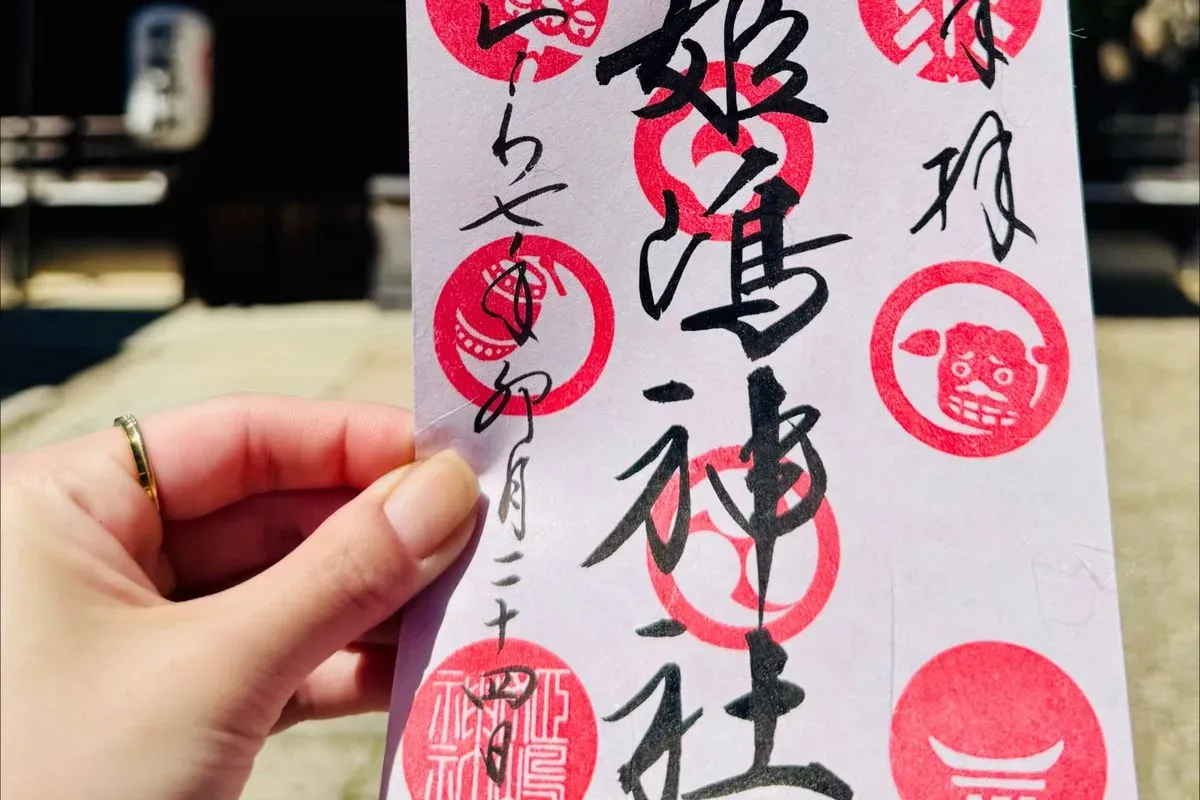 拝
姫嶋神社
令和七年卯月二十四日